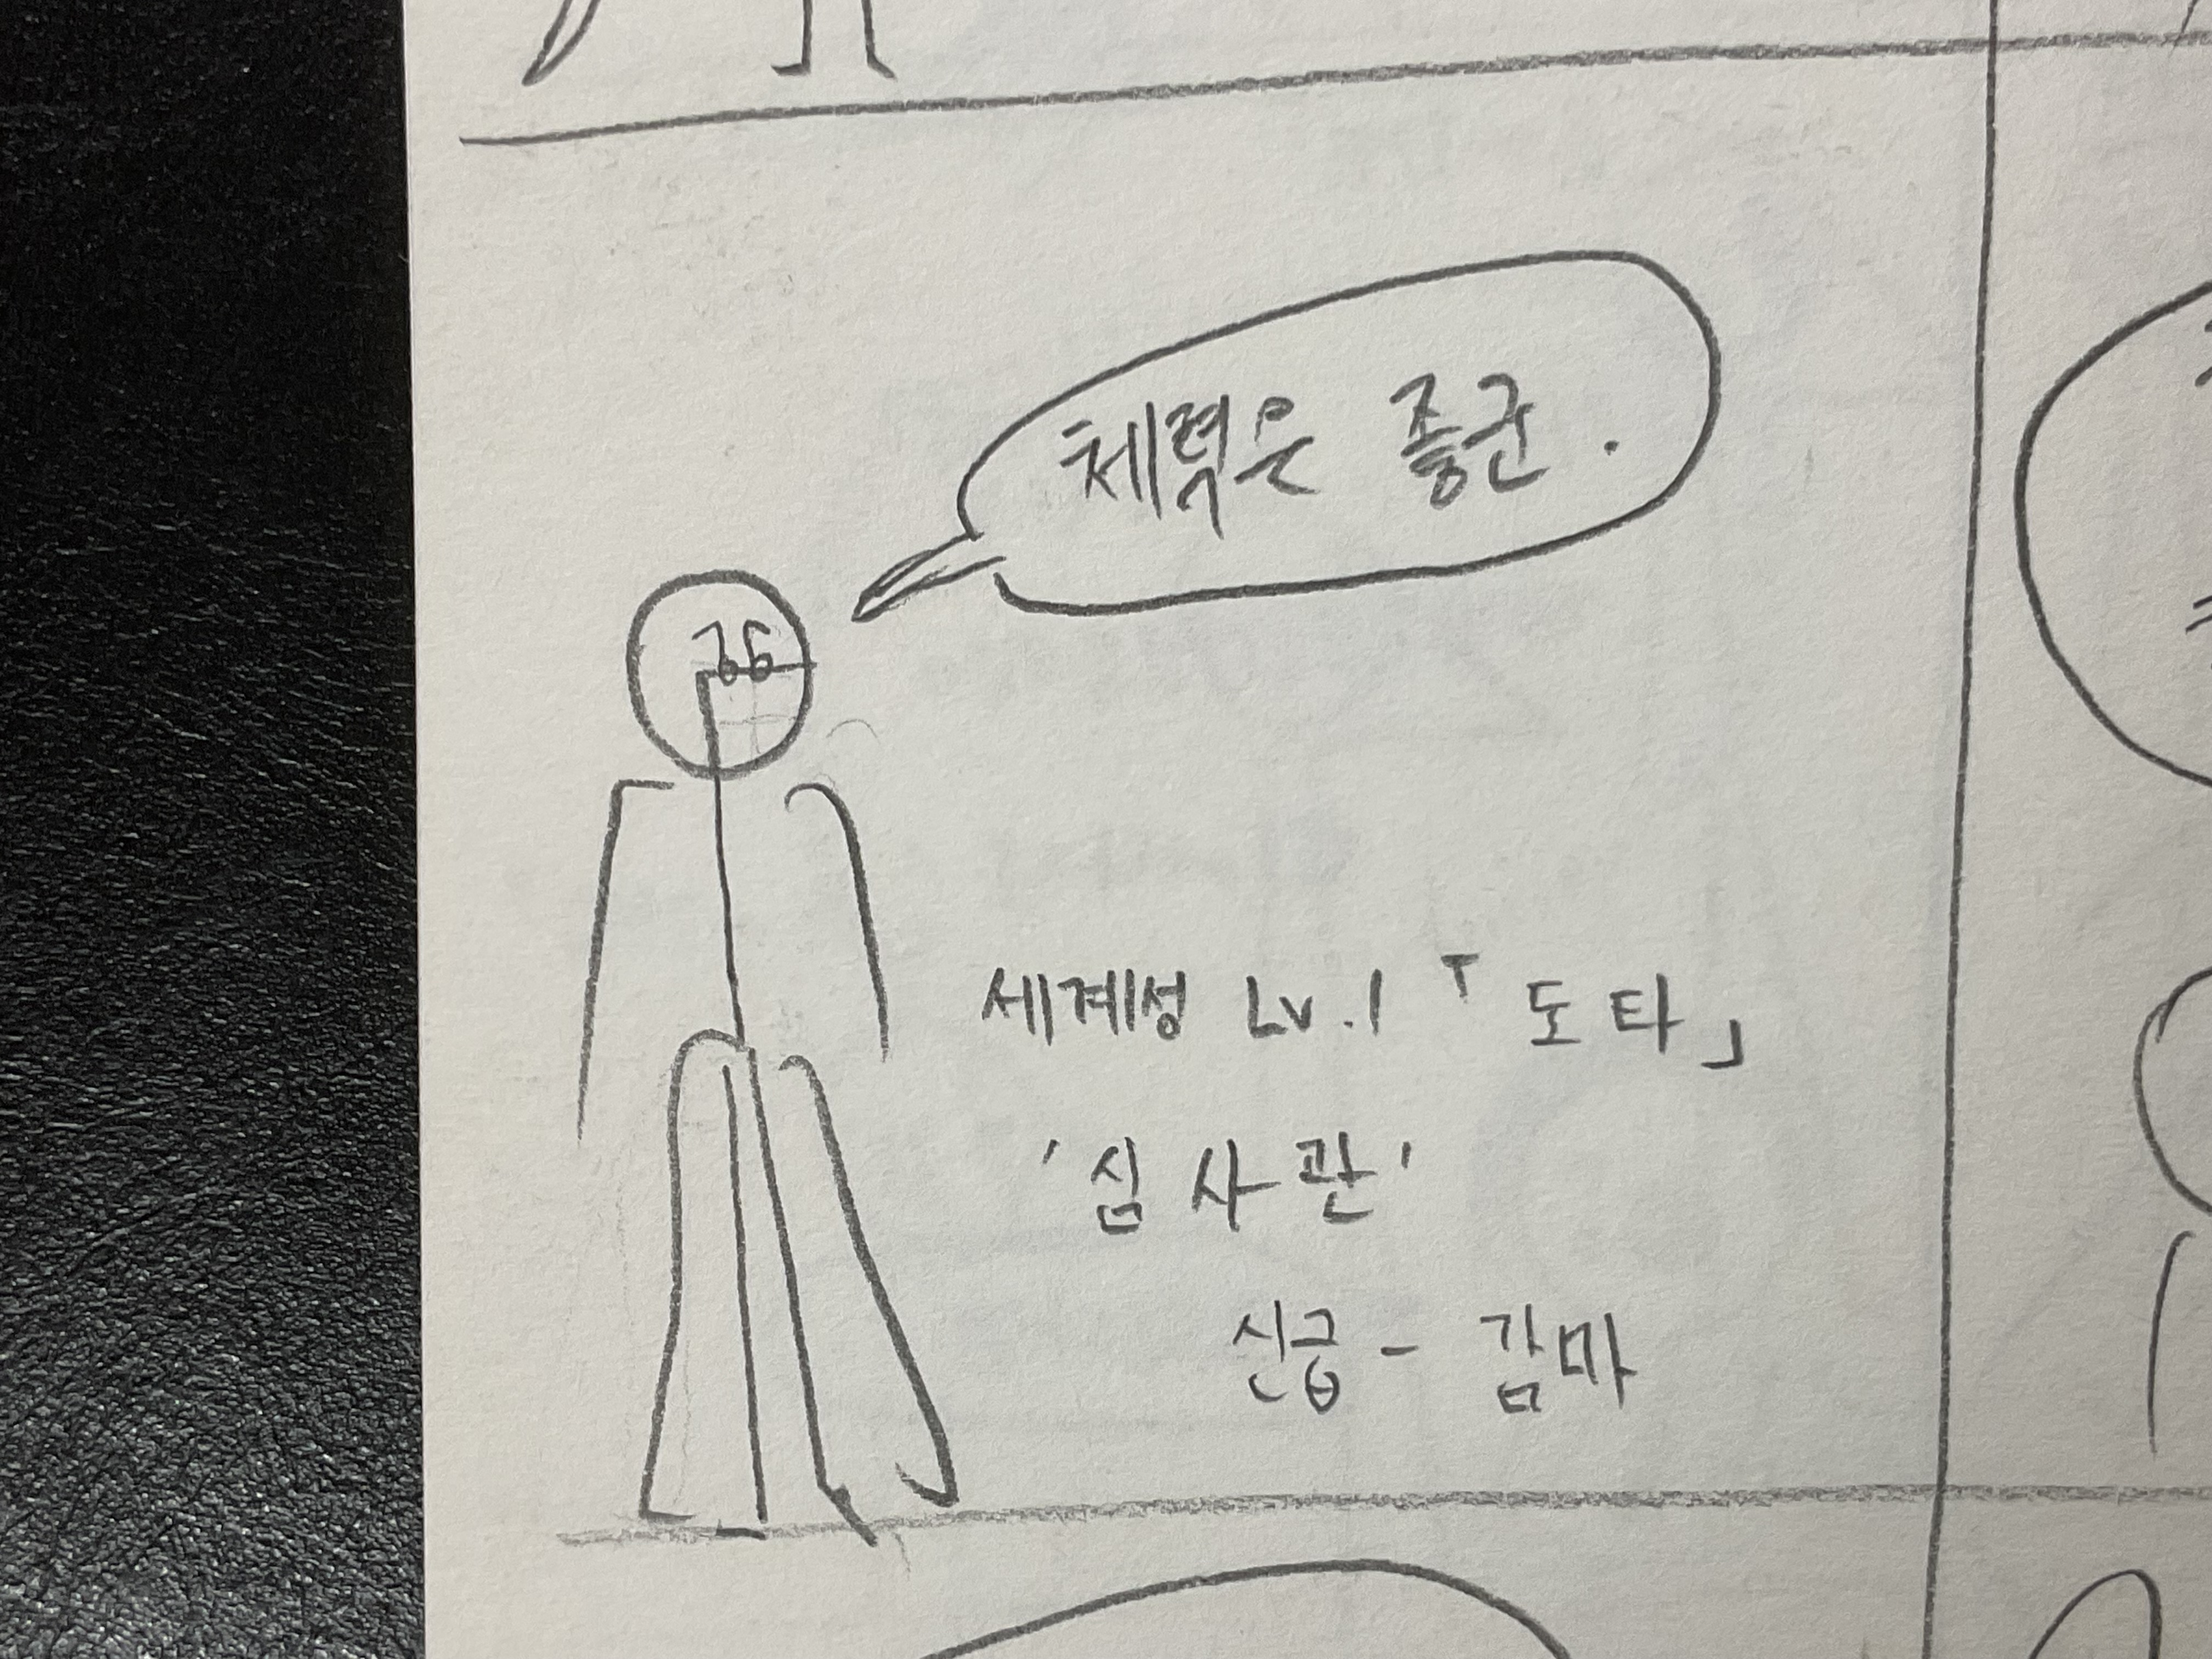 체력은 좋군.
세계성 Lv.1 「도타」
'심사관'
신급 - 감마